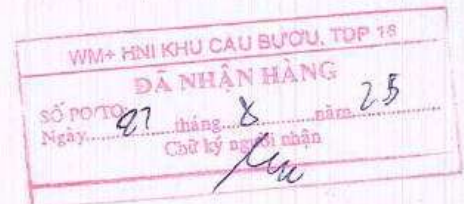 WM+ HNI KHU CAU BƯƠU, TDP 18
ĐÃ NHẬN HÀNG
SỐ PO/TO
Ngày 27 tháng 8 năm 25
Chữ ký người nhận